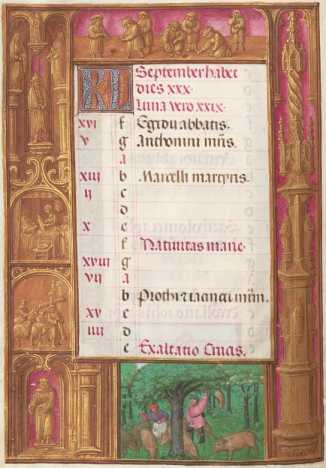 KL September habet
dies xxx.
Luna vero xxix.
xvi f Egidii abbatis.
v g Anthonini m̃ris.
a
xiii b Marcelli martyris.
ii c
d
x e
f Natiuitas marie
xviii g
vii a
b Prothi & iacincti m̃rm.
xv c
iiii d
e Exaltatio crucis.